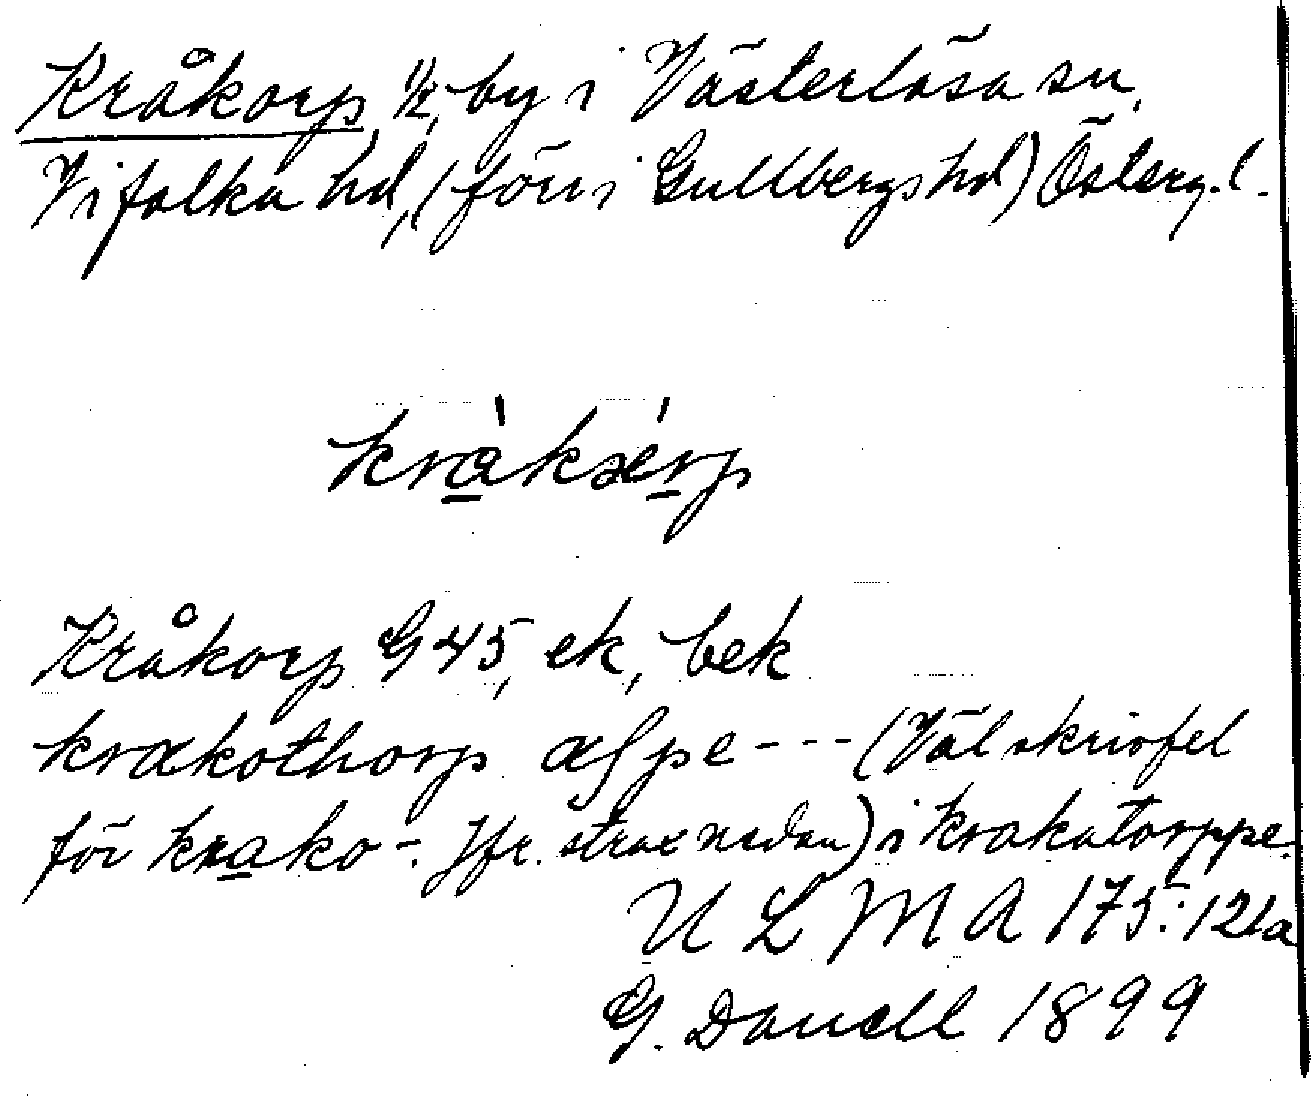 Kråkorp, 1/2, by i Västerlösa sn,
Vifolka hd, (förr i Gullbergs hd) Österg. l.
kràksérp
Kråkorp G 45, ek, bek
krakothorp afpe --- (Väl skrivfel
för krako-. Jfr. strax nedan) i krakatorppe.
U L M A 175:121a
G. Danell 1899